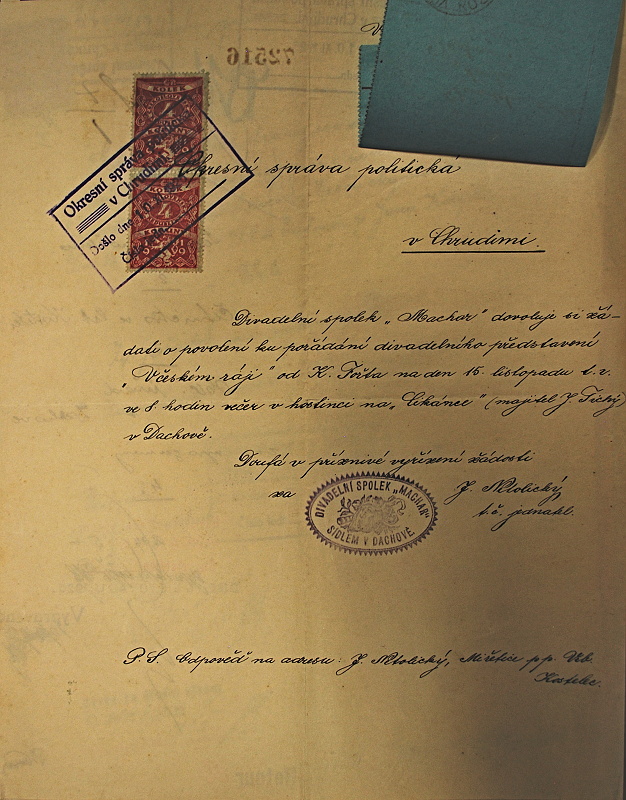 72516
KOLEK
Okresní správa
v Chrudimi
Došlo dne
Okresní správa politická
v Chrudimi.
Divadelní spolek „Machar" dovoluje si žá-
dati o povolení ku pořádání divadelního představení
„V českém ráji" od K. Fořta na den 15. listopadu t. r.
ve 8. hodin večer v hostinci na „Cikánce" (majitel J. Tichý)
v Dachově.
Doufá v příznivé vyřízení žádosti
za
J. Ntolický
t. č. jednatel.
DIVADELNÍ SPOLEK „MACHAR"
SÍDLEM V DACHOVĚ
P. S. Odpověď na adresu: J. Ntolický, Miřetice p. p. Vrb.
Kostelec.